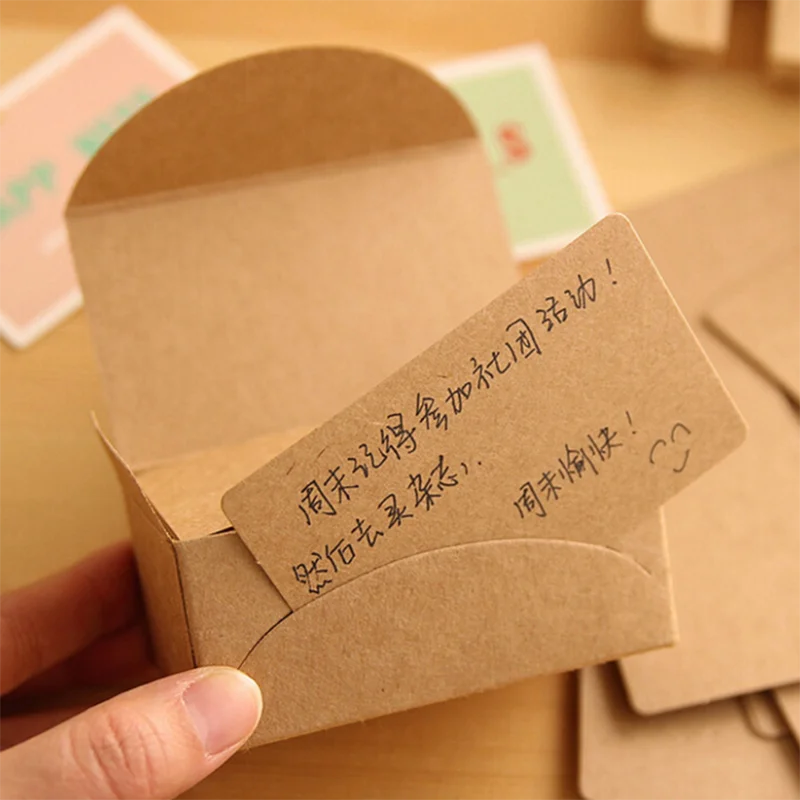 周末记得参加社团活动！
然后去买杂志，..
周末愉快！